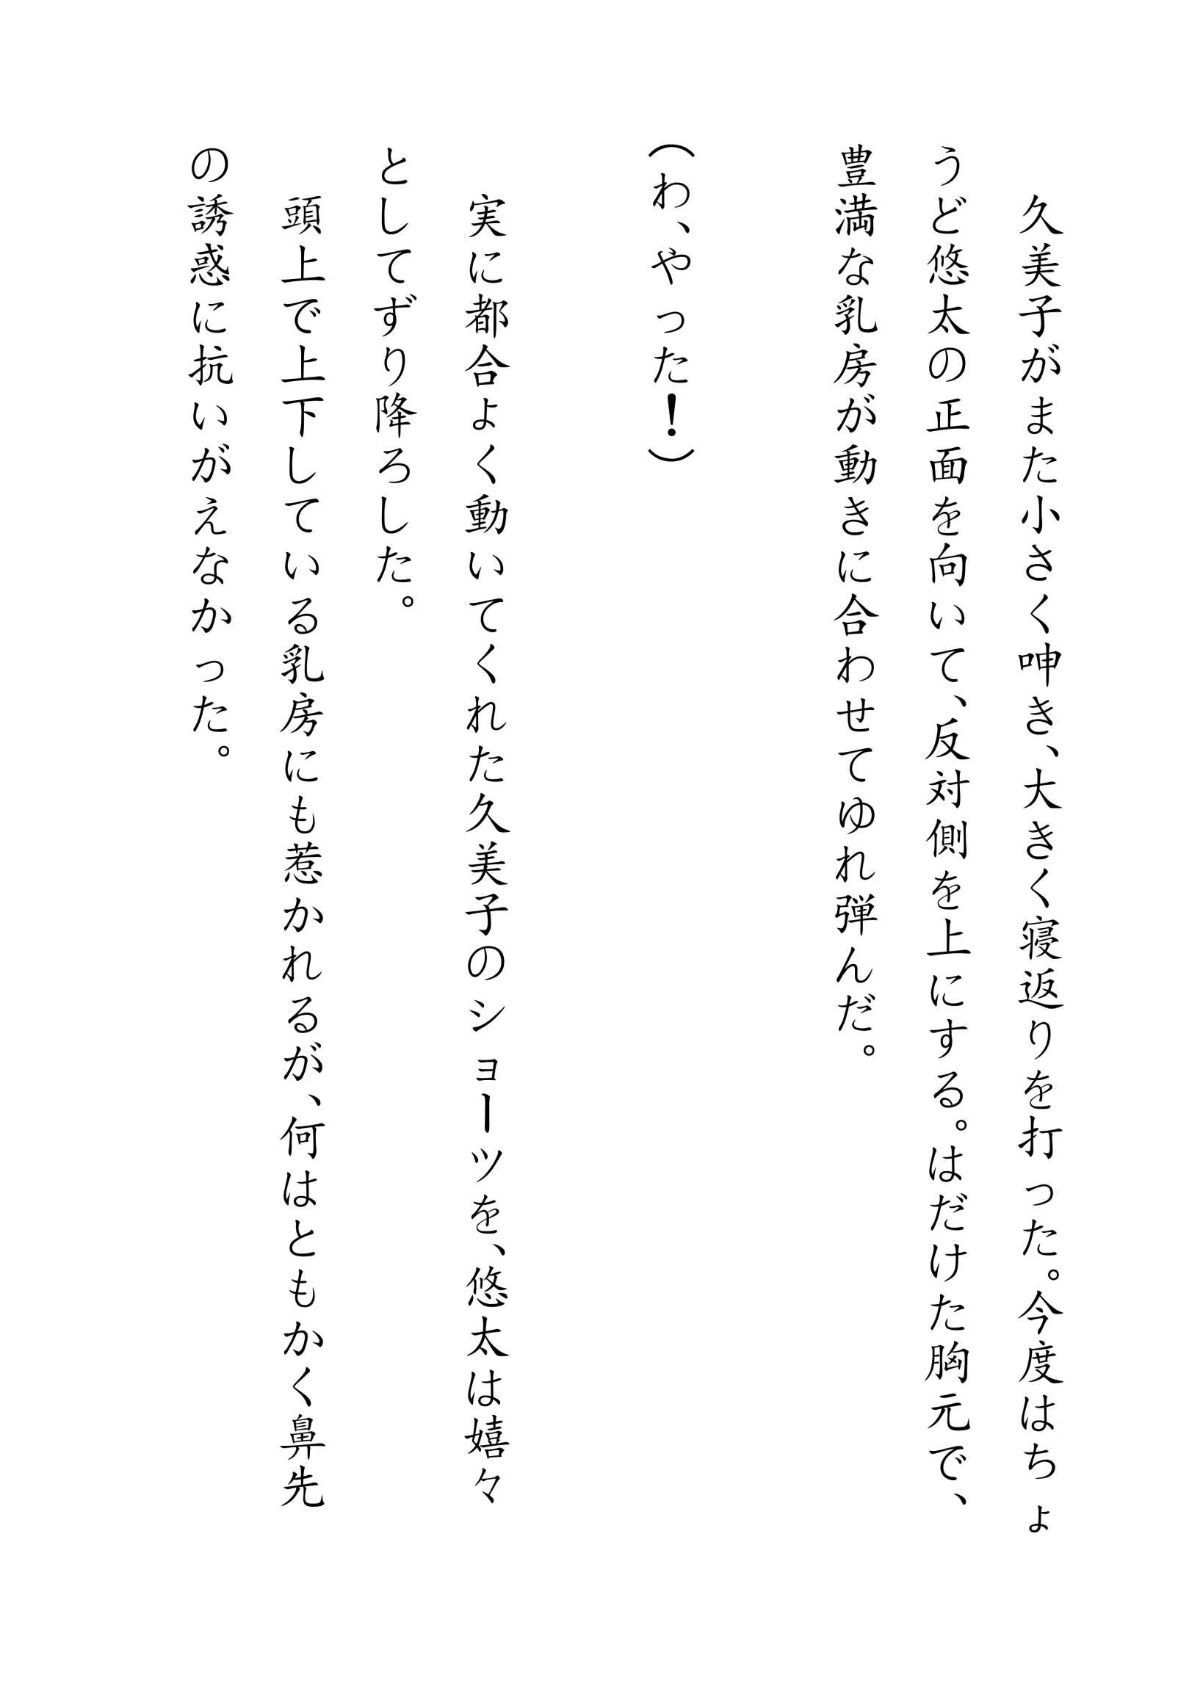 久美子がまた小さく呻き、大きく寝返りを打った。今度はちょ
うど悠太の正面を向いて、反対側を上にする。はだけた胸元で、
豊満な乳房が動きに合わせてゆれ弾んだ。
（わ、やった！）
実に都合よく動いてくれた久美子のショーツを、悠太は嬉々
としてずり降ろした。
頭上で上下している乳房にも惹かれるが、何はともかく鼻先
の誘惑に抗いがえなかった。